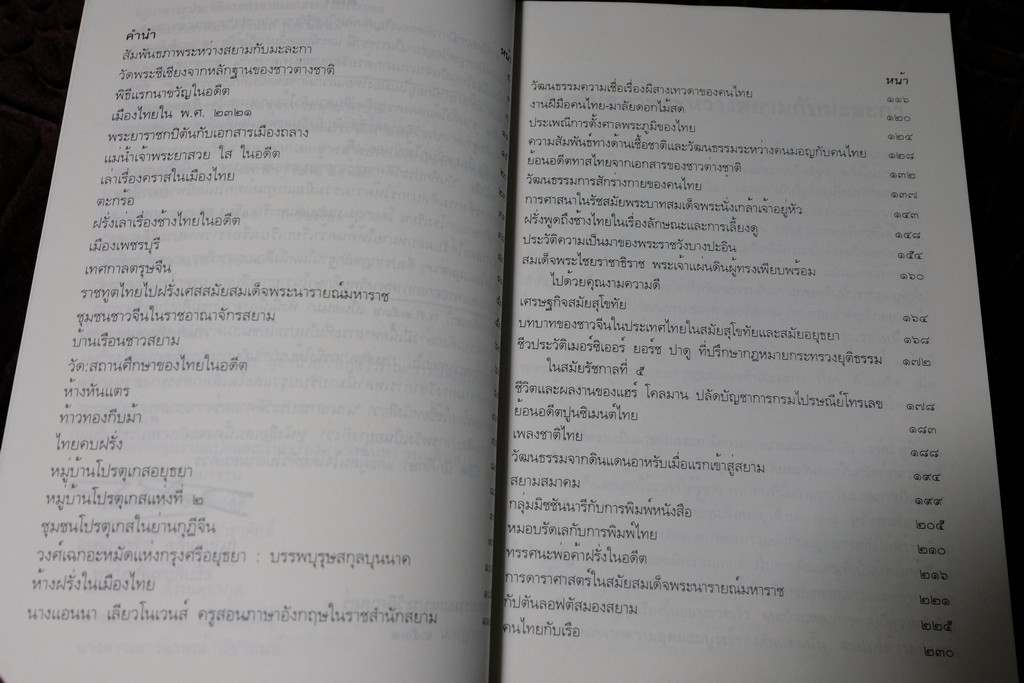 คำนำ
สัมพันธภาพระหว่างสยามกับมะละกา
วัดพระชีเชียงจากหลักฐานของชาวต่างชาติ
พิธีแรกนาขวัญในอดีต
เมืองไทยใน พ.ศ. ๒๓๒๑
พระยาราชกปิตันกับเอกสารเมืองถลาง
แม่น้ำเจ้าพระยาสวย ใส ในอดีต
เล่าเรื่องคราสในเมืองไทย
ตะกร้อ
ฝรั่งเล่าเรื่องช้างไทยในอดีต
เมืองเพชรบุรี
เทศกาลตรุษจีน
ราชทูตไทยไปฝรั่งเศสสมัยสมเด็จพระนารายณ์มหาราช
ชุมชนชาวจีนในราชอาณาจักรสยาม
บ้านเรือนชาวสยาม
วัด:สถานศึกษาของไทยในอดีต
ห้างหันแตร
ท้าวทองกีบม้า
ไทยคบฝรั่ง
หมู่บ้านโปรตุเกสอยุธยา
หมู่บ้านโปรตุเกสแห่งที่ ๒
ชุมชนโปรตุเกสในย่านกุฎีจีน
วงศ์เฉกอะหมัดแห่งกรุงศรีอยุธยา : บรรพบุรุษสกุลบุนนาค
ห้างฝรั่งในเมืองไทย
นางแอนนา เลียวโนเวนส์ ครูสอนภาษาอังกฤษในราชสำนักสยาม
หน้า
วัฒนธรรมความเชื่อเรื่องผีสางเทวดาของคนไทย ๑๑๖
งานฝีมือคนไทย-มาลัยดอกไม้สด ๑๒๐
ประเพณีการตั้งศาลพระภูมิของไทย ๑๒๔
ความสัมพันธ์ทางด้านเชื้อชาติและวัฒนธรรมระหว่างคนมอญกับคนไทย ๑๒๘
ย้อนอดีตทาสไทยจากเอกสารของชาวต่างชาติ ๑๓๒
วัฒนธรรมการสักร่างกายของคนไทย ๑๓๗
การศาสนาในรัชสมัยพระบาทสมเด็จพระนั่งเกล้าเจ้าอยู่หัว ๑๔๓
ฝรั่งพูดถึงช้างไทยในเรื่องลักษณะและการเลี้ยงดู ๑๔๘
ประวัติความเป็นมาของพระราชวังบางปะอิน ๑๕๔
สมเด็จพระไชยราชาธิราช พระเจ้าแผ่นดินผู้ทรงเพียบพร้อม ๑๖๐
ไปด้วยคุณงามความดี
เศรษฐกิจสมัยสุโขทัย ๑๖๔
บทบาทของชาวจีนในประเทศไทยในสมัยสุโขทัยและสมัยอยุธยา ๑๖๘
ชีวประวัติเมอร์ซิเออร์ ยอร์ช ปาดู ที่ปรึกษากฎหมายกระทรวงยุติธรรม ๑๗๒
ในสมัยรัชกาลที่ ๕
ชีวิตและผลงานของแฮร์ โคลมาน ปลัดบัญชาการกรมไปรษณีย์โทรเลข ๑๗๘
ย้อนอดีตปูนซิเมนต์ไทย ๑๘๓
เพลงชาติไทย ๑๘๘
วัฒนธรรมจากดินแดนอาหรับเมื่อแรกเข้าสู่สยาม ๑๙๔
สยามสมาคม ๑๙๙
กลุ่มมิชชันนารีกับการพิมพ์หนังสือ ๒๐๕
หมอบรัดเลกับการพิมพ์ไทย ๒๑๐
ทรรศนะพ่อค้าฝรั่งในอดีต ๒๑๖
การดาราศาสตร์ในสมัยสมเด็จพระนารายณ์มหาราช ๒๒๑
กัปตันลอฟตัสมองสยาม ๒๒๕
คนไทยกับเรือ ๒๓๐